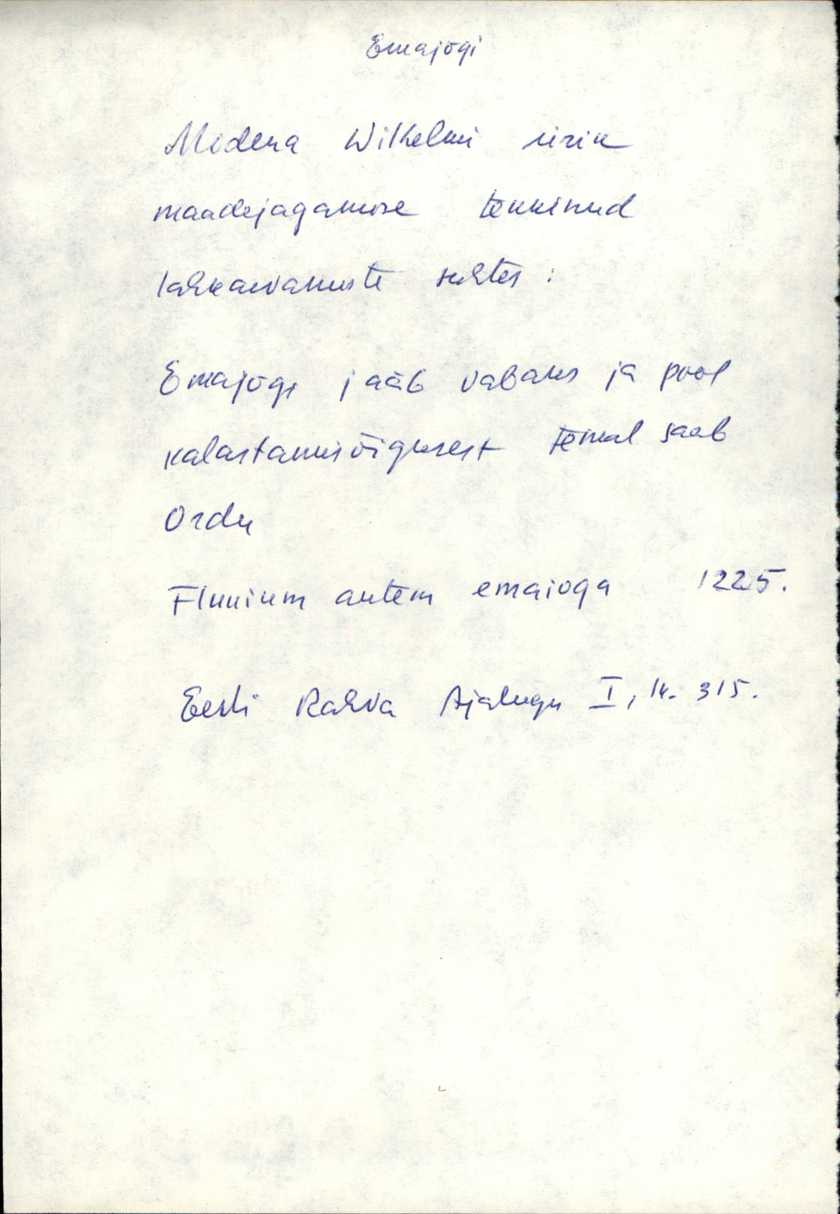 Emajõgi
Modena Wilhelmi ürik
maadejagamise tekkinud
lahkarvamuste suhtes :
Emajõgi jääb vabaks ja pool
kalastamisõigusest temal saab
Ordu
Fluuium autem emaioga 1225.
Eesti Rahva Ajalugu I, lk. 315.